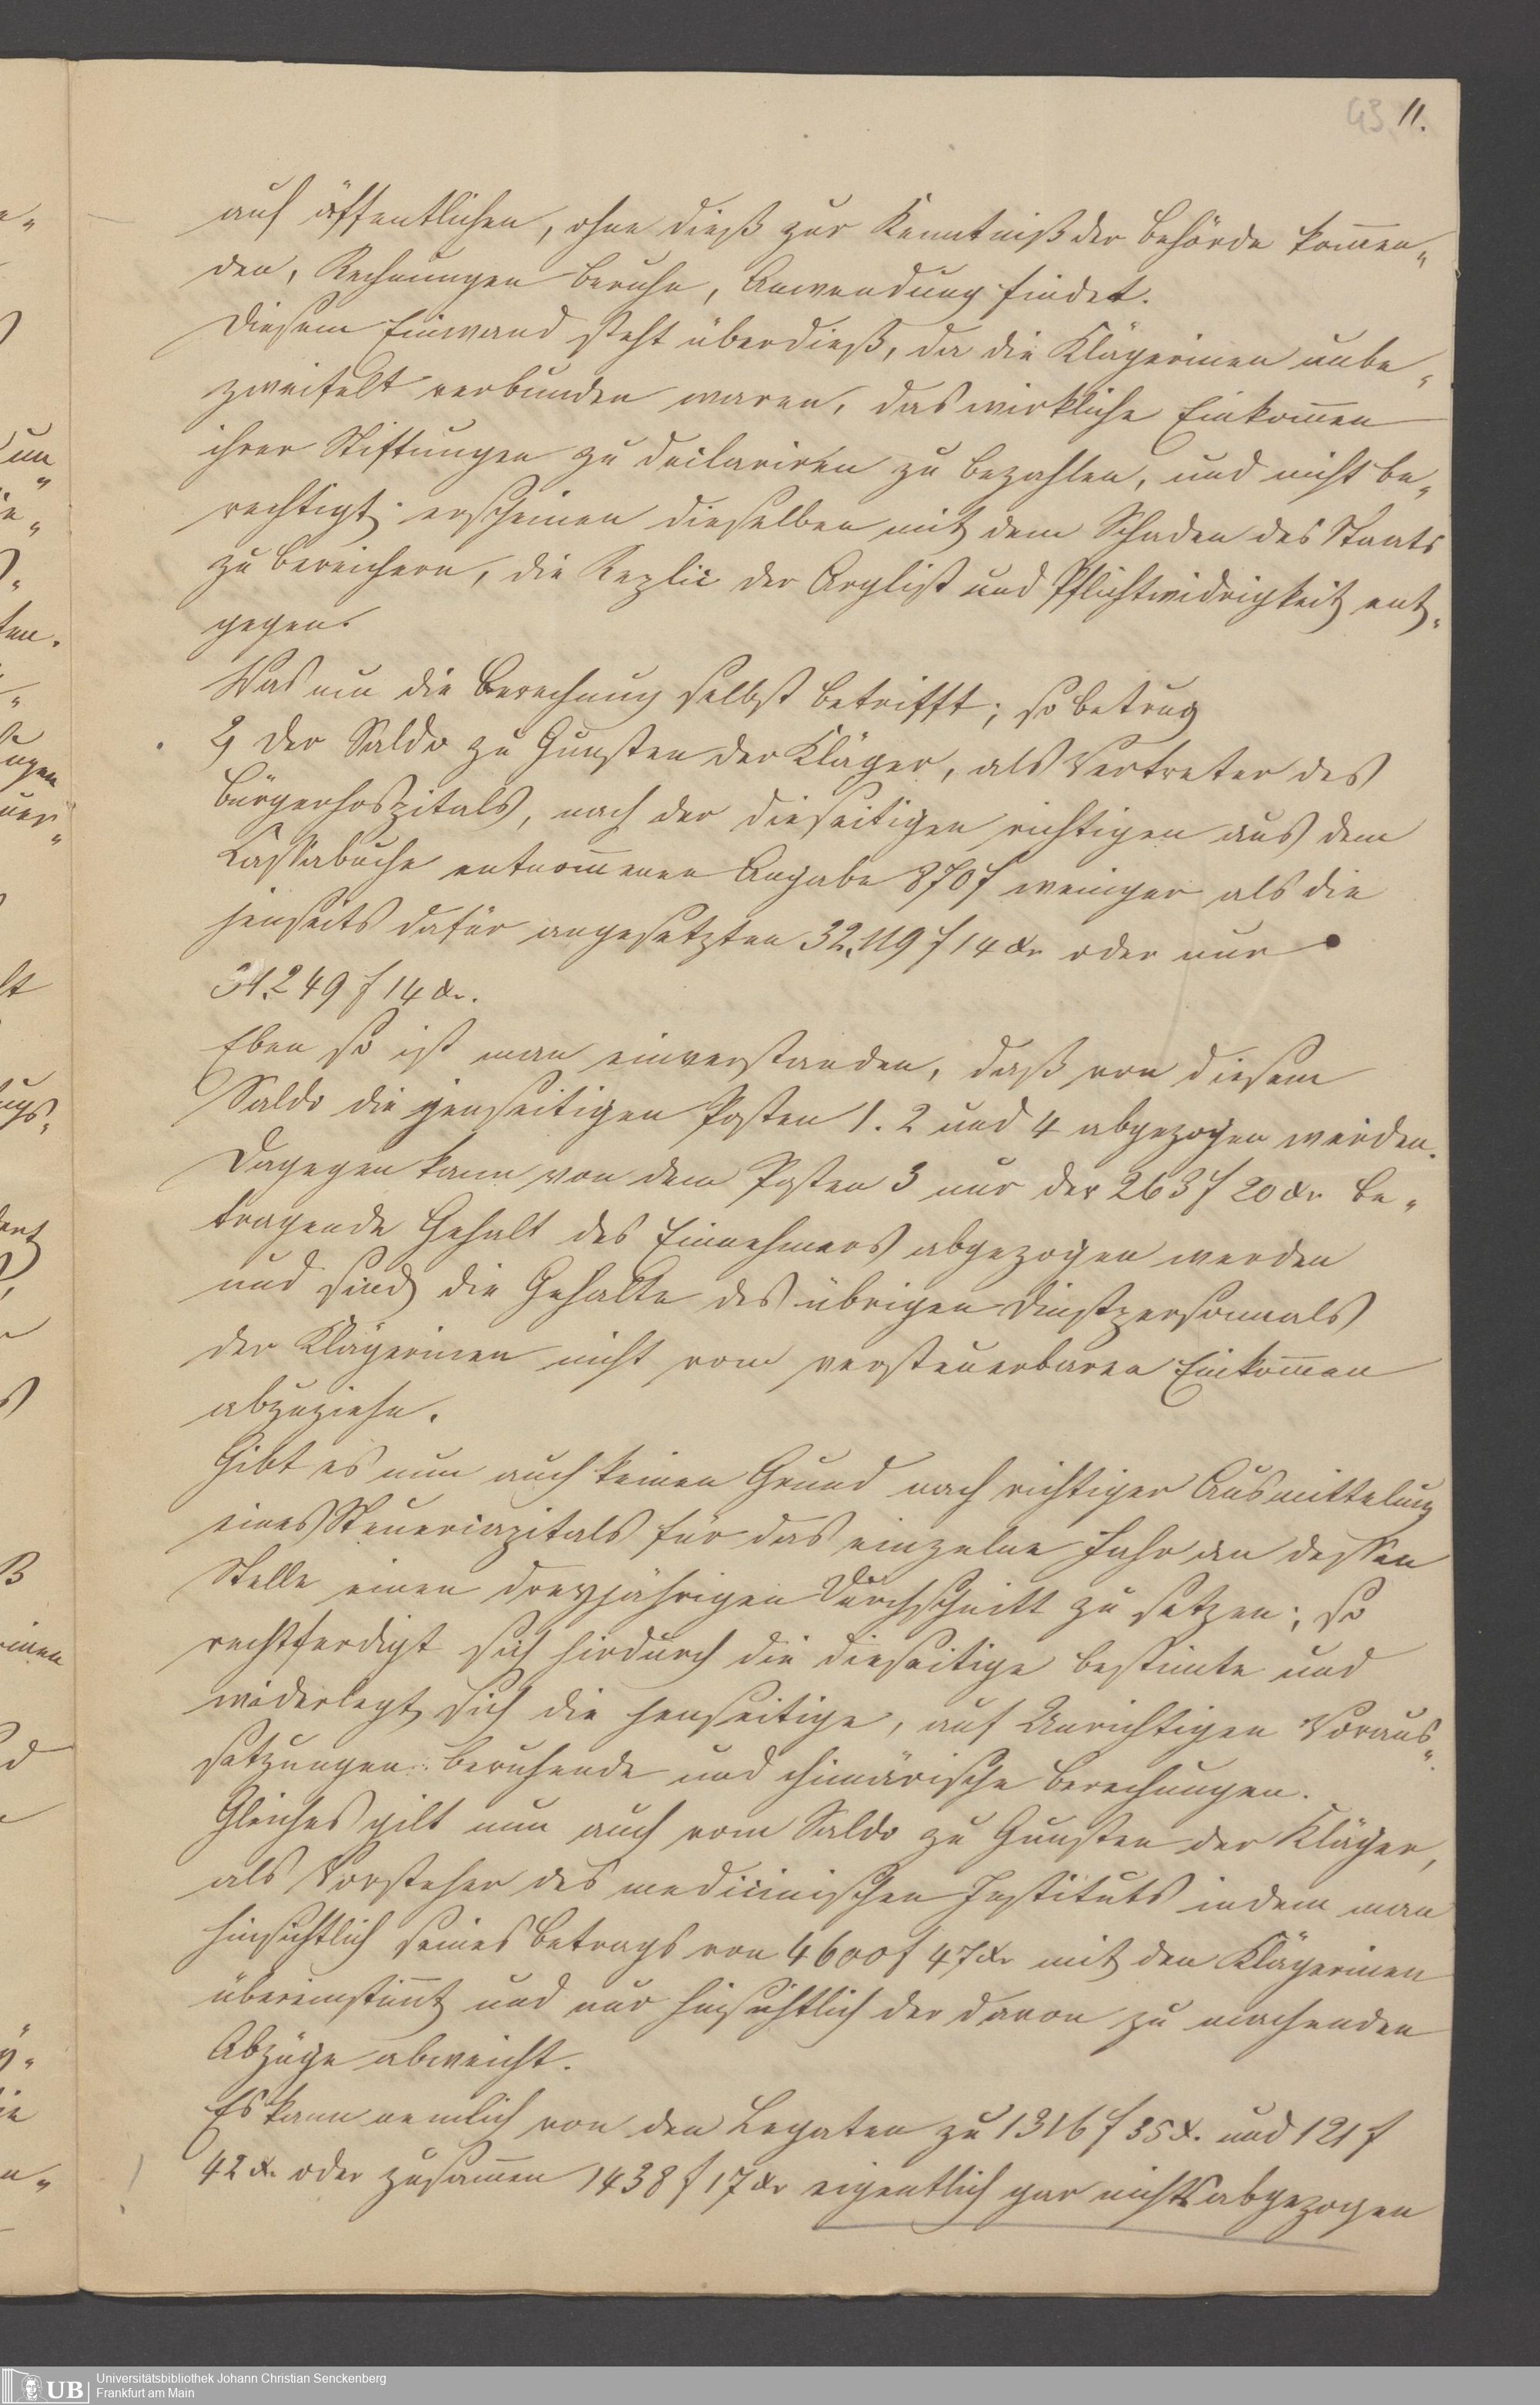 43 11.
auf öffentlichen, ohne dieß zur Kenntniß der Behörde kom̄en„
den, Rechnungen beruhe, Anwendung findet.
Diesem Einwand steht überdieß, da die Klägerinen unbe„
zweifelt verbunden waren, das wirkliche Einkom̄en
ihrer Stiftungen zu declariren zu bezahlen, und nicht be„
rechtigt erscheinen dieselben mit dem Schaden des Staats
zu bereichern, die Replic der Arglist und Pflichtwidrigkeit ent„
gegen.
Was nun die Berechnung selbst betrifft; so betrug
2, der Saldo zu Gunsten der Kläger, als Vertreter des
Bürgerhospitals, nach der dieseitigen richtigen aus dem
Cassabuche entnom̄enen Angabe 870 f weniger als die
jenseits dafür angesetzten 32,119 f 14 xr oder nur
31,249 f 14 xr.
Eben so ist man einverstanden, daß von diesem
Saldo die jenseitigen Posten 1. 2 und 4 abgezogen werden.
Dagegen kann von dem Posten 3 nur der 263 f 20 xr be„
tragende Gehalt des Einnehmers abgezogen werden
und sind die Gehalte des übrigen Dinstpersonals
der Klägerinen nicht vom versteuerbaren Einkom̄en
abzuziehn.
Gibt es nun auch keinen Grund nach richtiger Ausmittelung
eines Steuercapitals für das einzelne Jahr an dessen
Stelle einen dreyjährigen Durchschnitt zu setzen; so
rechtferdigt sich hirdurch die dieseitige bestim̄te und
widerlegt sich die jenseitige, auf Unrichtigen Voraus„
setzungen beruhende und chimärische Berechungen.
Gleiches gilt nun auch vom Saldo zu Gunsten der Kläger,
als Vorsteher des medicinischen Instituts indem man
hinsichtlich seines Betrags von 4600 f 47 xr mit den Klägerinen
übereinstim̄t und nur hinsichtlich der davon zu machenden
Abzüge abweicht.
Es kann nemlich von den Legaten zu 1316 f 35 x. und 121 f
42 x. oder zusam̄en 1438 f 17 xr eigentlich gar nichts abgezogen
UB Universitätsbibliothek Johann Christian Senckenberg
Frankfurt am Main